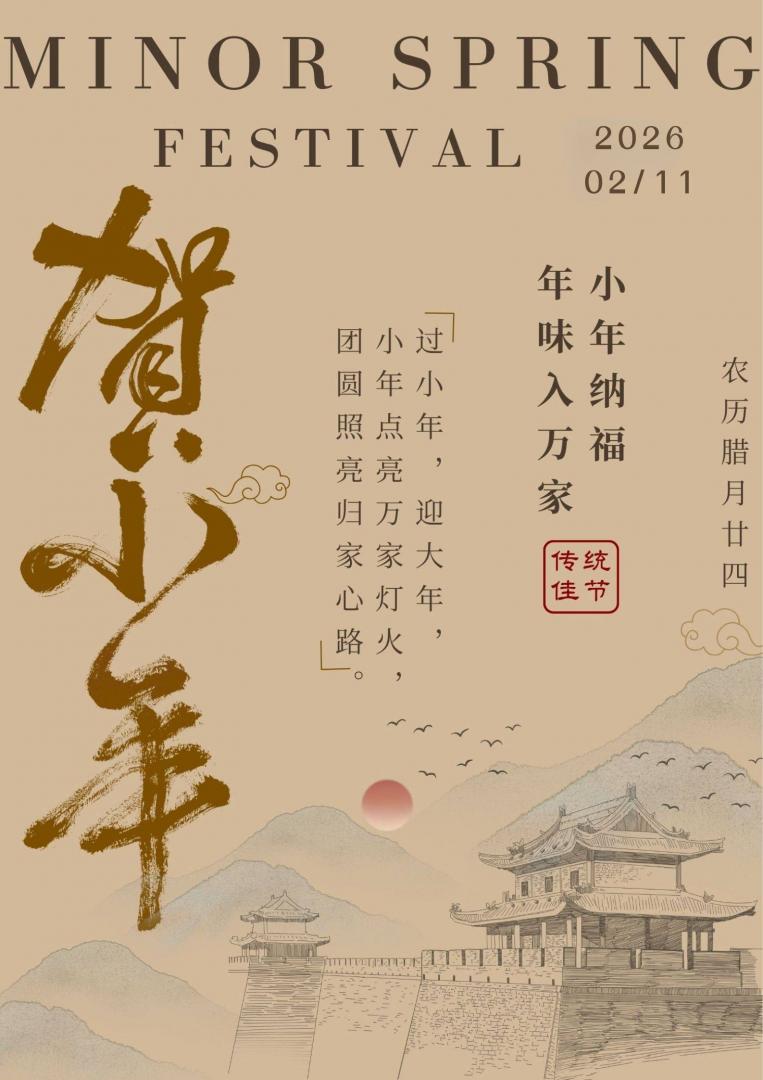 MINOR SPRING
FESTIVAL
2026
02/11
贺小年
小年纳福
年味入万家
过小年，迎大年，
小年点亮万家灯火，
团圆照亮归家心路。
农历腊月廿四
统节
传佳